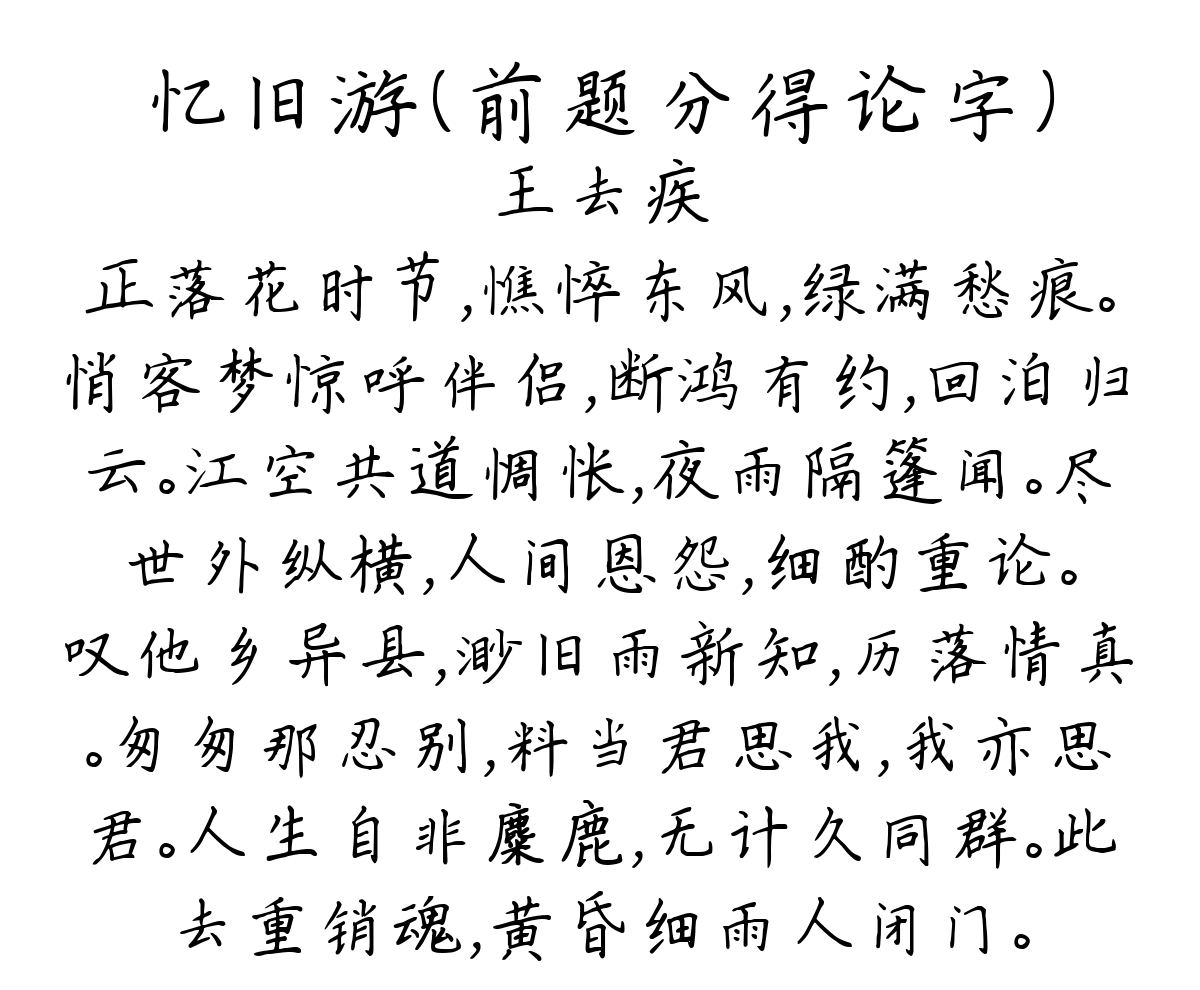 忆旧游(前题分得论字)
王去疾
正落花时节,憔悴东风,绿满愁痕。
悄客梦惊呼伴侣,断鸿有约,回泊归
云。江空共道惆怅,夜雨隔篷闻。尽
世外纵横,人间恩怨,细酌重论。
叹他乡异县,渺旧雨新知,历落情真
。匆匆那忍别,料当君思我,我亦思
君。人生自非麋鹿,无计久同群。此
去重销魂,黄昏细雨人闭门。